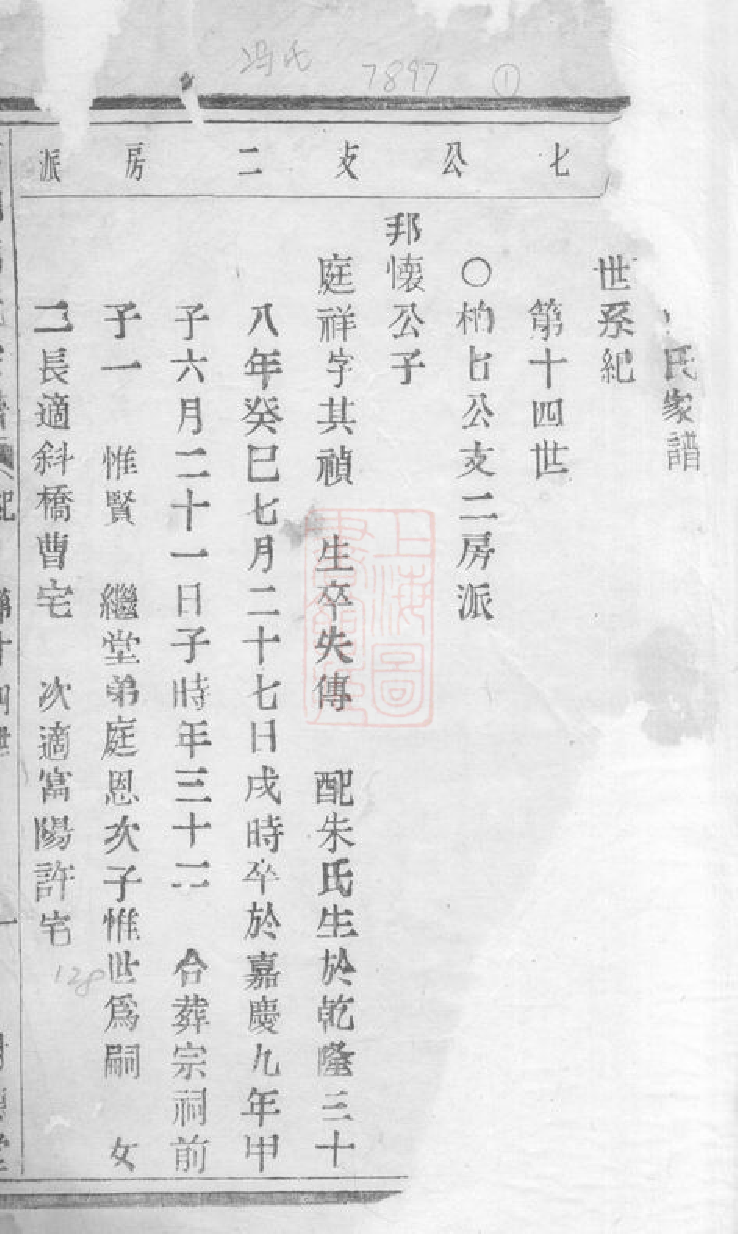 冯氏 7897 ①
七公支二房派
氏家譜
世系紀
第十四世
○柏七公支二房派
邦懷公子
庭祥字其禎 生卒失傳 配朱氏生於乾隆三十
八年癸巳七月二十七日戌時卒於嘉慶九年甲
子六月二十一日子時年三十二 合葬宗祠前
子一 惟賢 繼堂弟庭恩次子惟世爲嗣 女
二長適斜橋曹宅 次適富陽許宅
128
上海圖